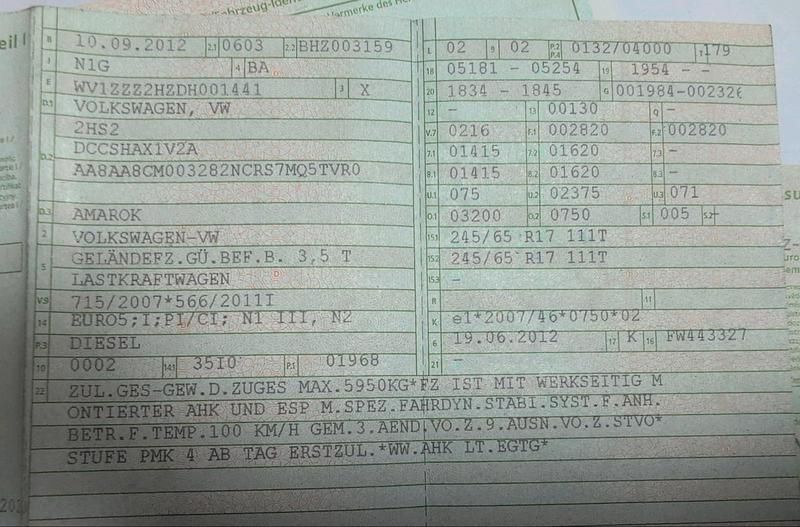 Fahrzeug-Iden
Vermerke des
eil I
B 10.09.2012 2.1 0603 2.2 BHZ003159
J N1G 4 BA
E WV1ZZZ2HZDH001441 3 X
D.1 VOLKSWAGEN, VW
2HS2
D.2 DCCSHAX1V2A
AA8AA8CM003282NCRS7MQ5TVR0
D.3 AMAROK
2 VOLKSWAGEN-VW
5 GELÄNDEFZ.GÜ.BEF.B. 3,5 T
LASTKRAFTWAGEN
V.9 715/2007*566/2011I
14 EURO5;I;PI/CI; N1 III, N2
P.3 DIESEL
10 0002 14.1 35I0 P.1 01968
L 02 9 02 P.2 P.4 0132/04000 T 179
18 05181 - 05254 19 1954 - -
20 1834 - 1845 G 001984-002326
12 - 13 00130 Q -
V.7 0216 F.1 002820 F.2 002820
7.1 01415 7.2 01620 7.3 -
8.1 01415 8.2 01620 8.3 -
U.1 075 U.2 02375 U.3 071
O.1 03200 O.2 0750 S.1 005 S.2 -
15.1 245/65 R17 111T
15.2 245/65 R17 111T
15.3 -
R 11
K e1*2007/46*0750*02
6 19.06.2012 17 K 16 FW443327
21 -
22 ZUL.GES-GEW.D.ZUGES MAX.5950KG*FZ IST MIT WERKSEITIG M
ONTIERTER AHK UND ESP M.SPEZ.FAHRDYN.STABI.SYST.F.ANH.
BETR.F.TEMP.100 KM/H GEM.3.AEND.VO.Z.9.AUSN.VO.Z.STVO*
STUFE PMK 4 AB TAG ERSTZUL.*WW.AHK LT.EGTG*